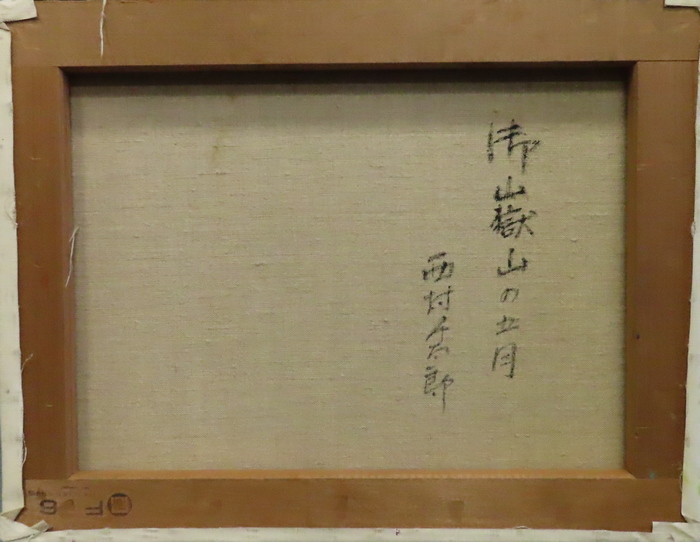 御嶽山の五月
西村千太郎
F 8